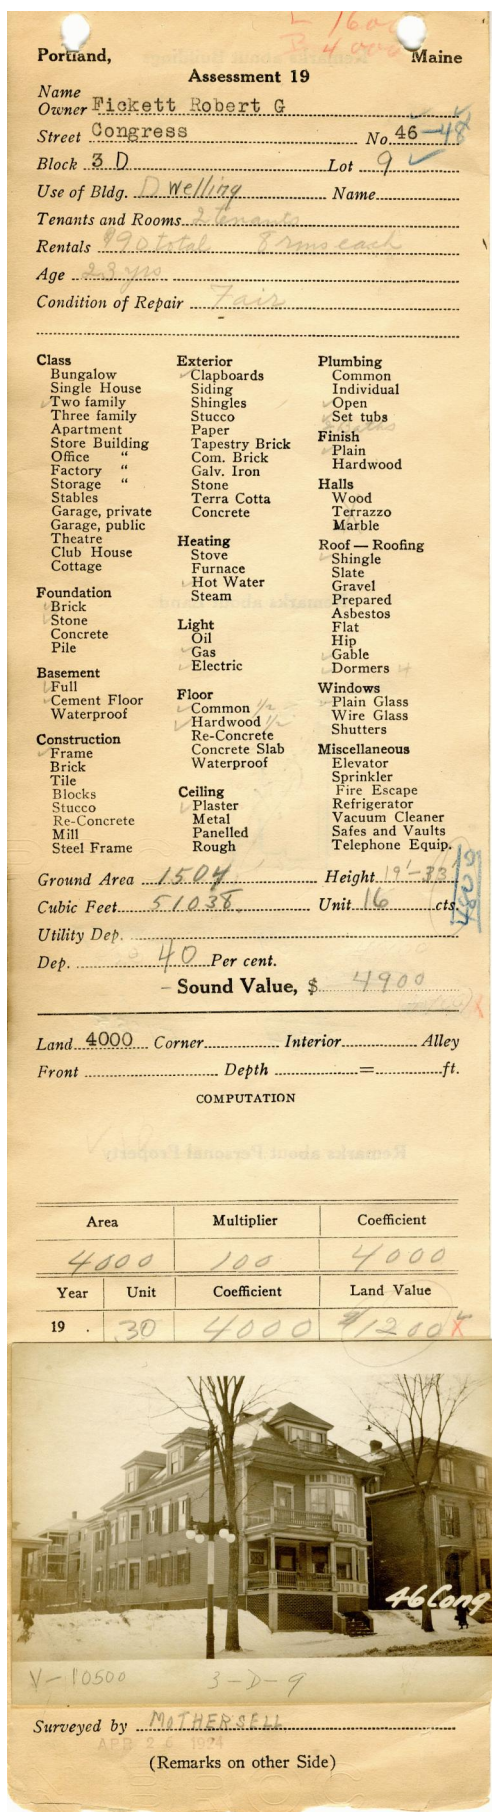 L 1600
B 4000
Portland, Maine
Assessment 19
Name
Owner Fickett Robert G
Street Congress No. 46-48
Block 3 D Lot 9
Use of Bldg. Dwelling Name
Tenants and Rooms 2 tenants
Rentals 90 total 8 rms each
Age 23 yrs
Condition of Repair Fair
Class
Bungalow
Single House
Two family
Three family
Apartment
Store Building
Office "
Factory "
Storage "
Stables
Garage, private
Garage, public
Theatre
Club House
Cottage
Foundation
Brick
Stone
Concrete
Pile
Basement
Full
Cement Floor
Waterproof
Construction
Frame
Brick
Tile
Blocks
Stucco
Re-Concrete
Mill
Steel Frame
Exterior
Clapboards
Siding
Shingles
Stucco
Paper
Tapestry Brick
Com. Brick
Galv. Iron
Stone
Terra Cotta
Concrete
Heating
Stove
Furnace
Hot Water
Steam
Light
Oil
Gas
Electric
Floor
Common 1/2
Hardwood 1/2
Re-Concrete
Concrete Slab
Waterproof
Ceiling
Plaster
Metal
Panelled
Rough
Plumbing
Common
Individual
Open
Set tubs
2 Baths
Finish
Plain
Hardwood
Halls
Wood
Terrazzo
Marble
Roof — Roofing
Shingle
Slate
Gravel
Prepared
Asbestos
Flat
Hip
Gable
Dormers 4
Windows
Plain Glass
Wire Glass
Shutters
Miscellaneous
Elevator
Sprinkler
Fire Escape
Refrigerator
Vacuum Cleaner
Safes and Vaults
Telephone Equip.
Ground Area 1504 Height 19'-33
Cubic Feet 51038 Unit 16 cts.
Utility Dep.
Dep. 40 Per cent.
Sound Value, $ 4900
Land 4000 Corner Interior Alley
Front Depth = ft.
COMPUTATION
Area Multiplier Coefficient
4000 100 4000
Year Unit Coefficient Land Value
19 . 30 4000 $1200
46 Cong
V-10500 3-D-9
Surveyed by MOTHERSELL
APR 26 1924
(Remarks on other Side)